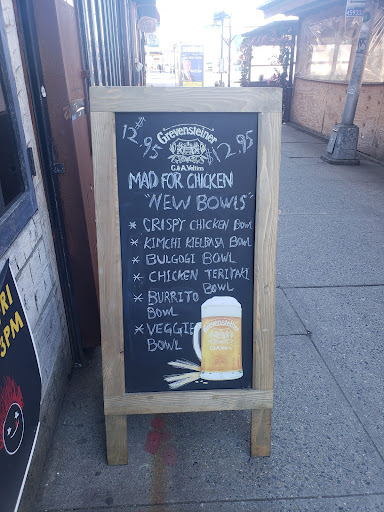 12.95
Grevensteiner
$12.95
C. & A. Veltins
MAD FOR CHICKEN
"NEW BOWLS"
* CRISPY CHICKEN BOWL
* KIMCHI KIELBASA BOWL
* BULGOGI BOWL
* CHICKEN TERIYAKI
BOWL
* BURRITO
BOWL
* VEGGIE
BOWL
Grevensteiner
RI
3PM